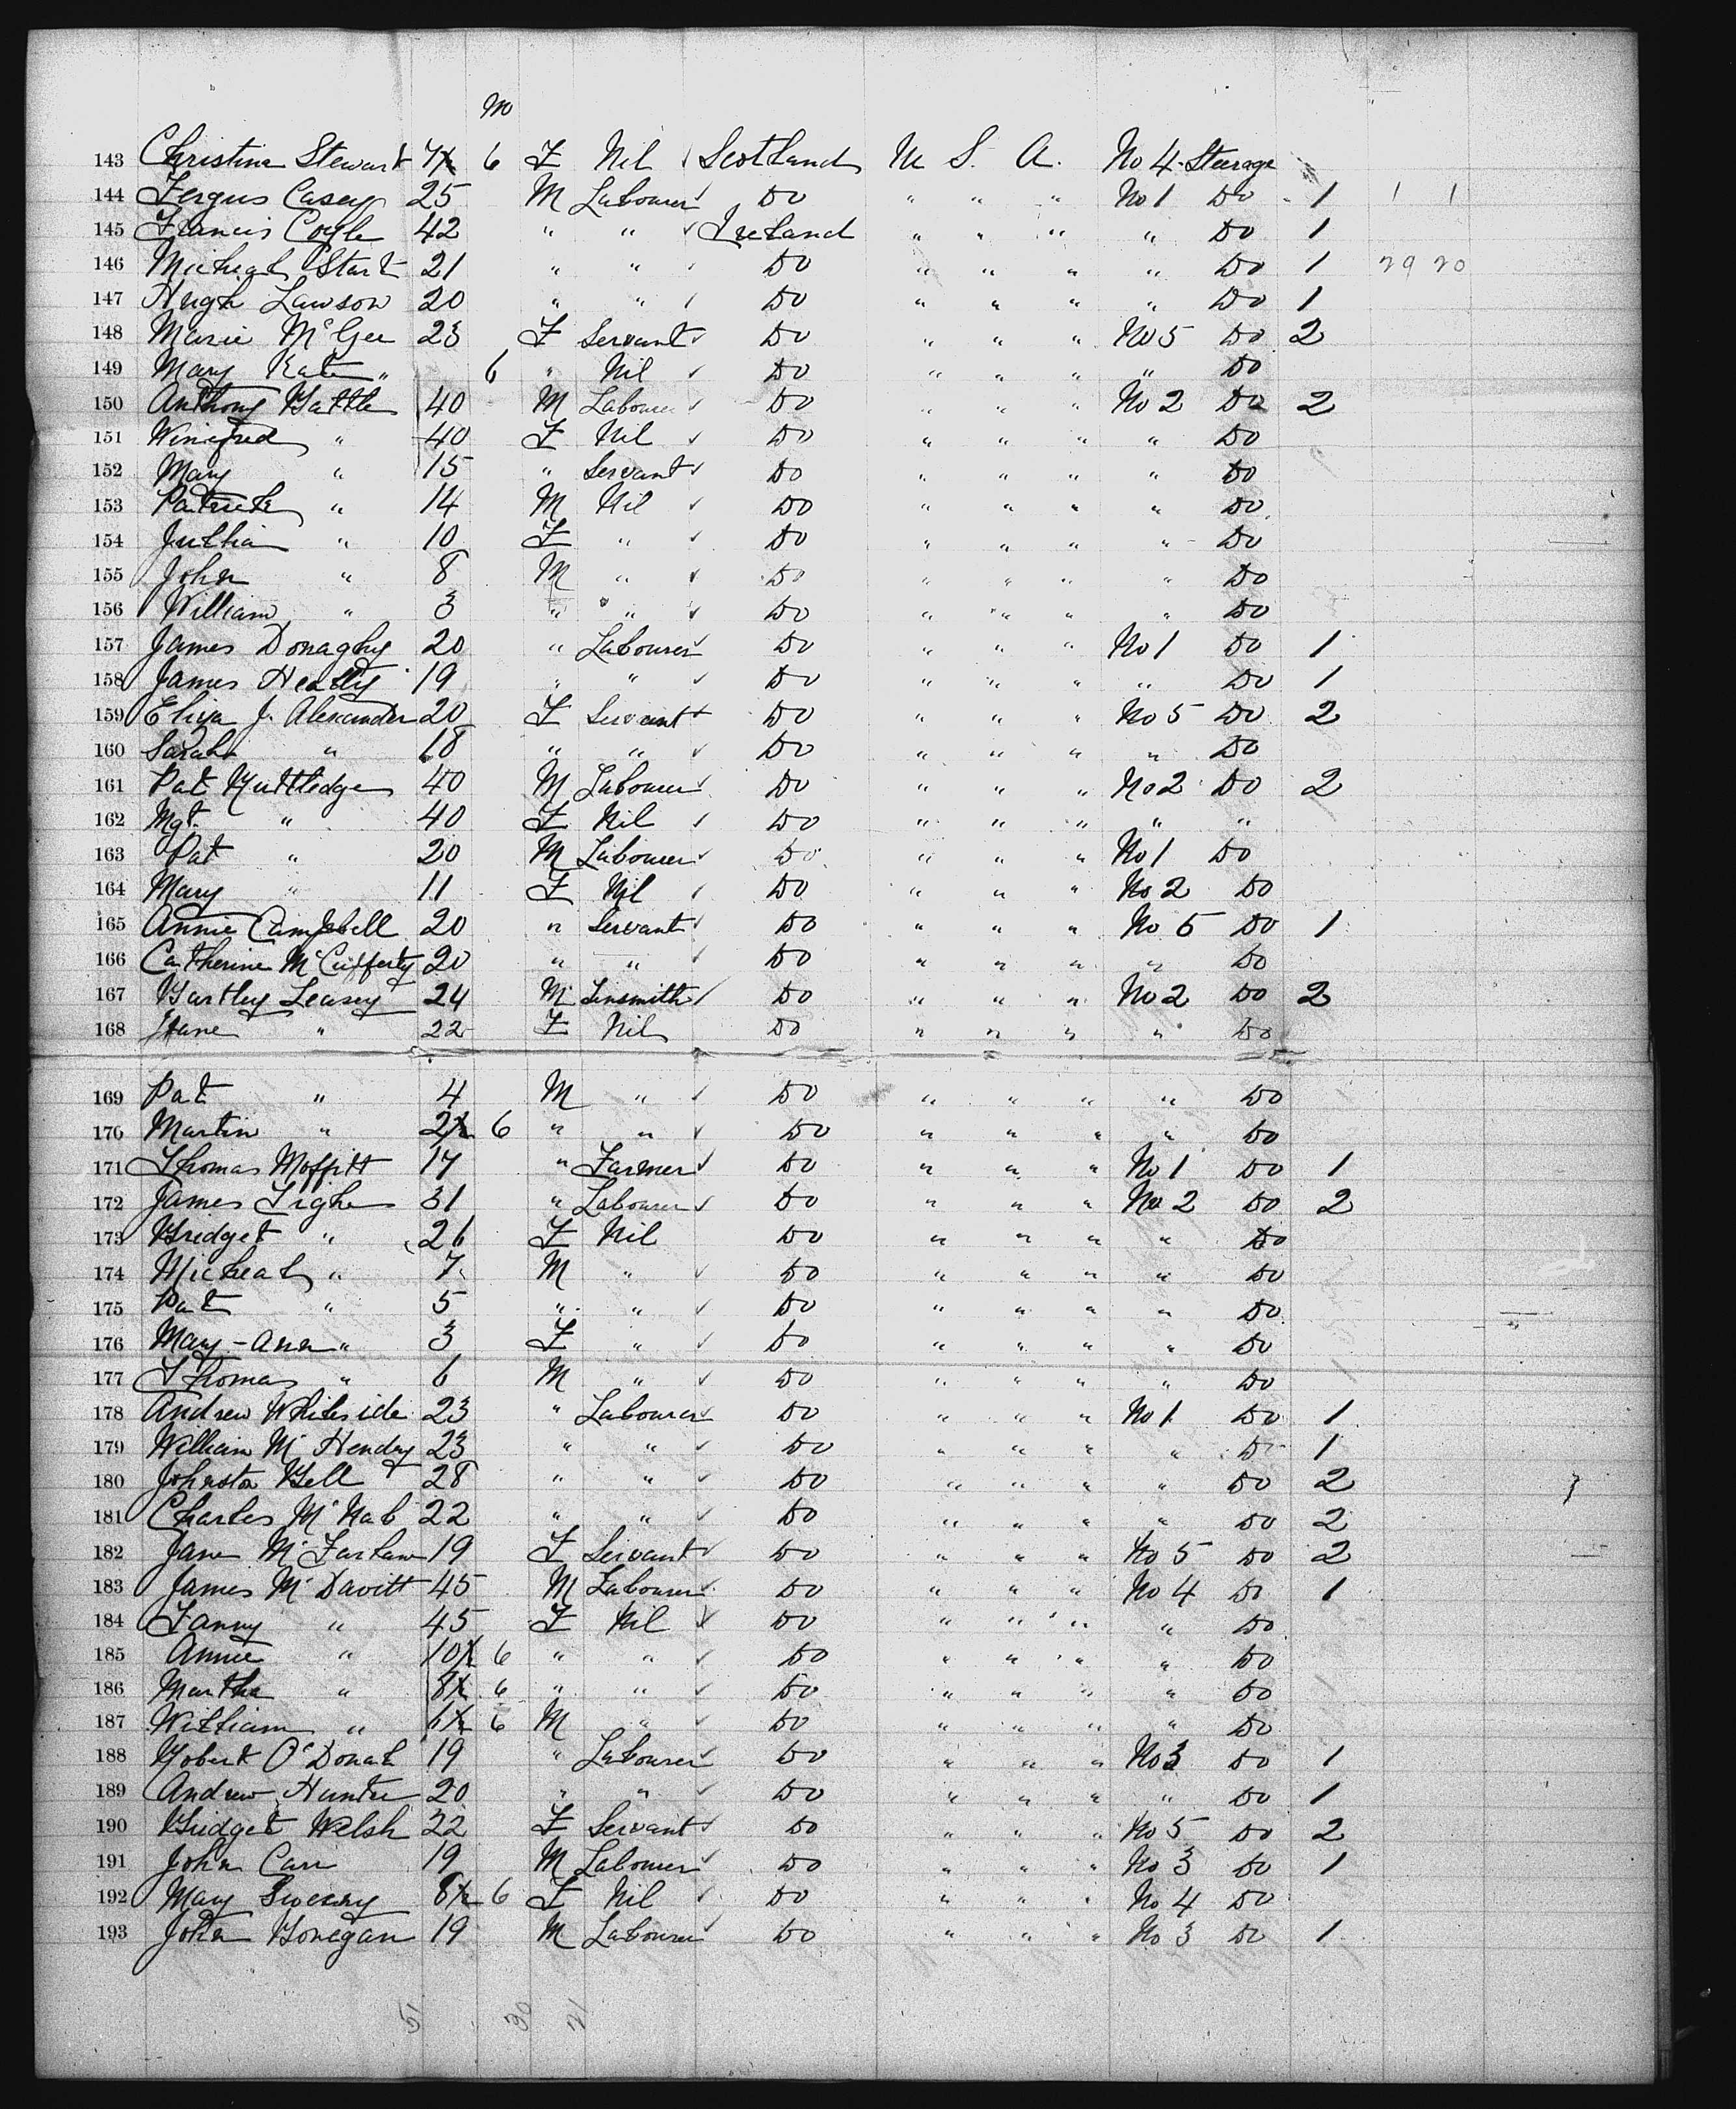 m
143 Christina Stewart 4½ 6 F Nil Scotland U S. A. No 4 Steerage
144 Fergus Casey 25 M Labourer Do " " " No 1 Do 1 1 1
145 Francis Coyle 42 " " Ireland " " " " Do 1
146 Micheal Start 21 " " Do " " " " Do 1 29 20
147 Hugh Lawson 20 " " Do " " " " Do 1
148 Marie McGee 23 F Servant Do " " " No 5 Do 2
149 Mary Kate " 6 " Nil Do " " " " Do
150 Anthony Battle 40 M Labourer Do " " " No 2 Do 2
151 Winifred " 40 F Nil Do " " " " Do
152 Mary " 15 " Servant Do " " " " Do
153 Patrick " 14 M Nil Do " " " " Do
154 Jullia " 10 F " Do " " " " Do
155 John " 8 M " Do " " " " Do
156 William " 3 " " Do " " " " Do
157 James Donaghy 20 " Labourer Do " " " No 1 Do 1
158 James Heatly 19 " " Do " " " " Do 1
159 Eliza J. Alexander 20 F Servant Do " " " No 5 Do 2
160 Sarah " 18 " " Do " " " " Do
161 Pat Ruttledge 40 M Labourer Do " " " No 2 Do 2
162 Mgt. " 40 F Nil Do " " " " "
163 Pat " 20 M Labourer Do " " " No 1 Do
164 Mary " 11 F Nil Do " " " No 2 Do
165 Annie Campbell 20 " Servant Do " " " No 5 Do 1
166 Catherine McCafferty 20 " " Do " " " " Do
167 Bartley Leasey 24 M Tinsmith Do " " " No 2 Do 2
168 Jane " 22 F Nil Do " " " " Do
169 Pat " 4 M " Do " " " " Do
170 Martin " 2½ 6 " " Do " " " " Do
171 Thomas Moffitt 17 " Farmer Do " " " No 1 Do 1
172 James Tighe 31 " Labourer Do " " " No 2 Do 2
173 Bridget " 26 F Nil Do " " " " Do
174 Micheal " 7 M " Do " " " " Do
175 Pat " 5 " " Do " " " " Do
176 Mary-Ann " 3 F " Do " " " " Do
177 Thomas " 6 M " Do " " " " Do
178 Andrew Whiteside 23 " Labourer Do " " " No 1 Do 1
179 William McHendry 23 " " Do " " " " Do 1
180 Johnston Bell 28 " " Do " " " " Do 2
181 Charles McNab 22 " " Do " " " " Do 2
182 Jane McFarlaw 19 F Servant Do " " " No 5 Do 2
183 James McDavitt 45 M Labourer Do " " " No 4 Do 1
184 Fanny " 45 F Nil Do " " " " Do
185 Annie " 10½ 6 " " Do " " " " Do
186 Martha " 8½ 6 " " Do " " " " Do
187 William " 6½ 6 M " Do " " " " Do
188 Robert O'Donal 19 " Labourer Do " " " No 3 Do 1
189 Andrew Hunter 20 " " Do " " " " Do 1
190 Bridget Welsh 22 F Servant Do " " " No 5 Do 2
191 John Carr 19 M Labourer Do " " " No 3 Do 1
192 Mary Sweeny 8½ 6 F Nil Do " " " No 4 Do
193 John Bonegan 19 M Labourer Do " " " No 3 Do 1
51 30 21